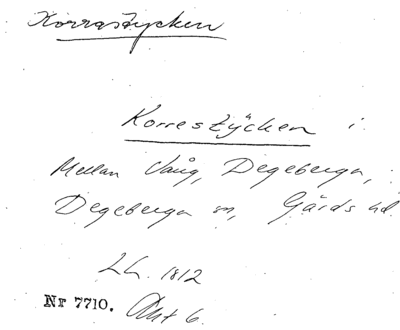 Korrastycken
Korrestÿcken i
Mellan Vång, Degeberga,
Degeberga sn, Gärds hd.
LH. 1812
Nr 7710. Akt 6.